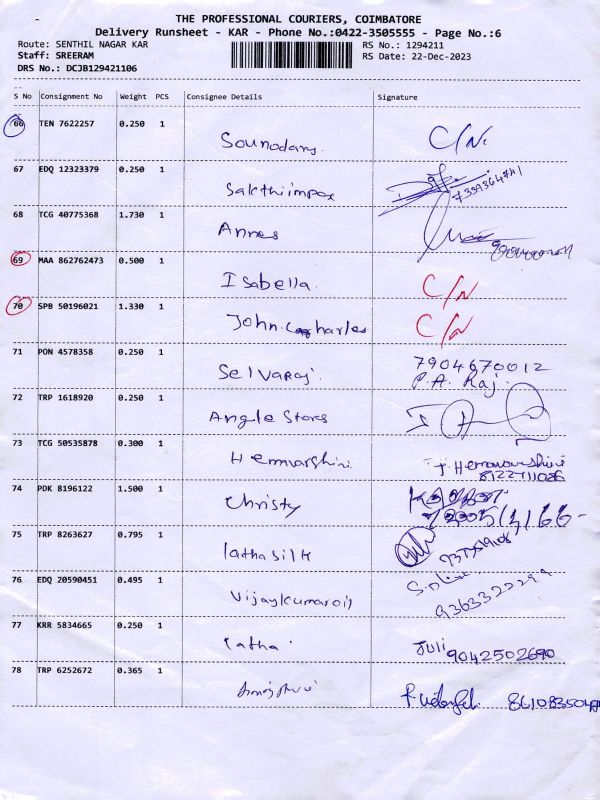 THE PROFESSIONAL COURIERS, COIMBATORE
Delivery Runsheet - KAR - Phone No.:0422-3505555 - Page No.:6
Route: SENTHIL NAGAR KAR RS No.: 1294211
Staff: SREERAM RS Date: 22-Dec-2023
DRS No.: DCJB129421106
S No Consignment No Weight PCS Consignee Details Signature
66 TEN 7622257 0.250 1 Soundary. C/N.
67 EDQ 12323379 0.250 1 Sakthiimpex
68 TCG 40775368 1.730 1 Annes
69 MAA 862762473 0.500 1 Isabella. C/N
70 SPB 50196021 1.330 1 John. charles C/N
71 PON 4578358 0.250 1 Selvaraj. 7904670012
P.A. Raj.
72 TRP 1618920 0.250 1 Angle Stores
73 TCG 50535878 0.300 1
74 PDK 8196122 1.500 1 Christy
75 TRP 8263627 0.795 1 lathasilk
76 EDQ 20590451 0.495 1 Vijaykumaroil
77 KRR 5834665 0.250 1 Latha. Juli 9042502690
78 TRP 6252672 0.365 1